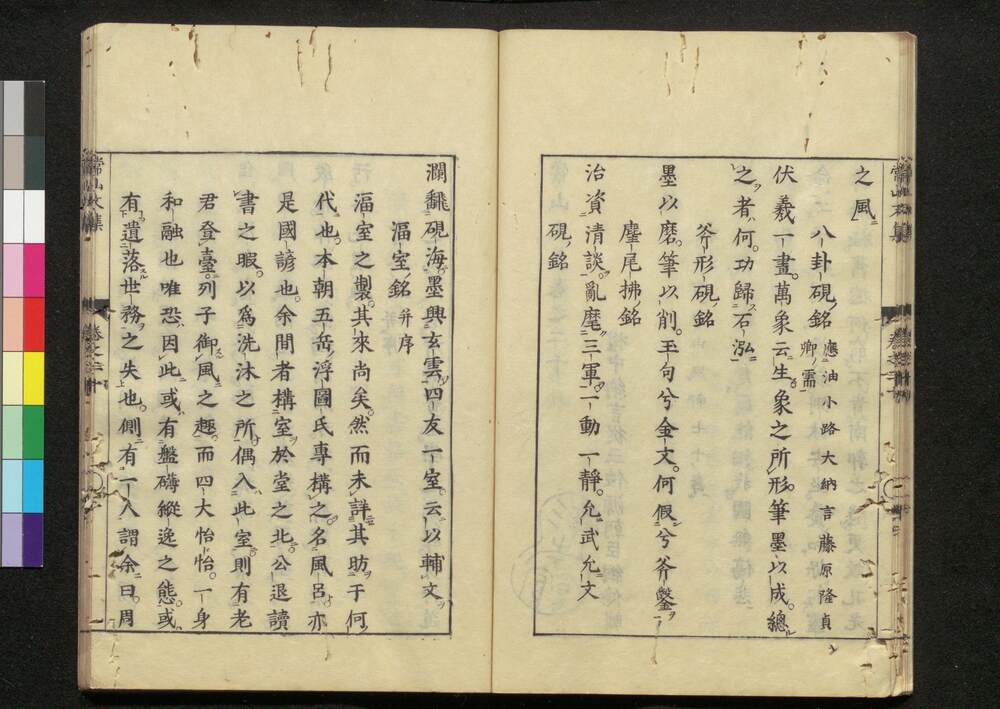 之風
八卦硯銘 應油小路大納言藤原隆貞
卿需
伏羲一畫萬象云生象之所形筆墨以成總
之者何功歸石泓
斧形硯銘
墨以磨筆以削玉句兮金文何假兮斧鑿
麈尾拂銘
治資清談亂麾三軍一動一靜允武允文
硯銘
瀾飜硯海墨興玄雲四友一室云以輔文
湢室銘 并序
湢室之製其來尚矣然而未詳其昉于何
代也本朝五岳浮圖氏專構之名風呂亦
是國諺也余間者構室於堂之北公退讀
書之暇以爲洗沐之所偶入此室則有老
君登臺列子御風之趣而四大怡怡一身
和融也唯恐因此或有盤礴縱逸之態或
有遺落世務之失也側有一人謂余曰周
常山文集
卷之二十